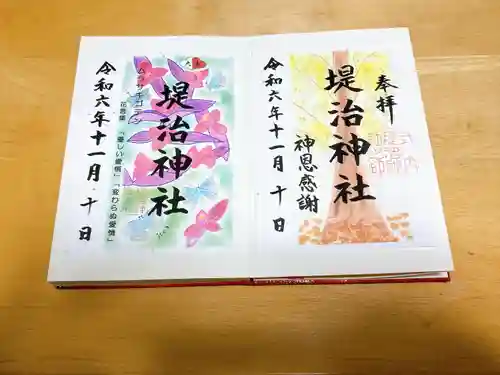 奉拝
堤治神社
神恩感謝
令和六年十一月十日
堤治神社
ムラサキゴテン
花言葉 「優しい愛情」「変わらぬ愛情」
令和六年十一月十日